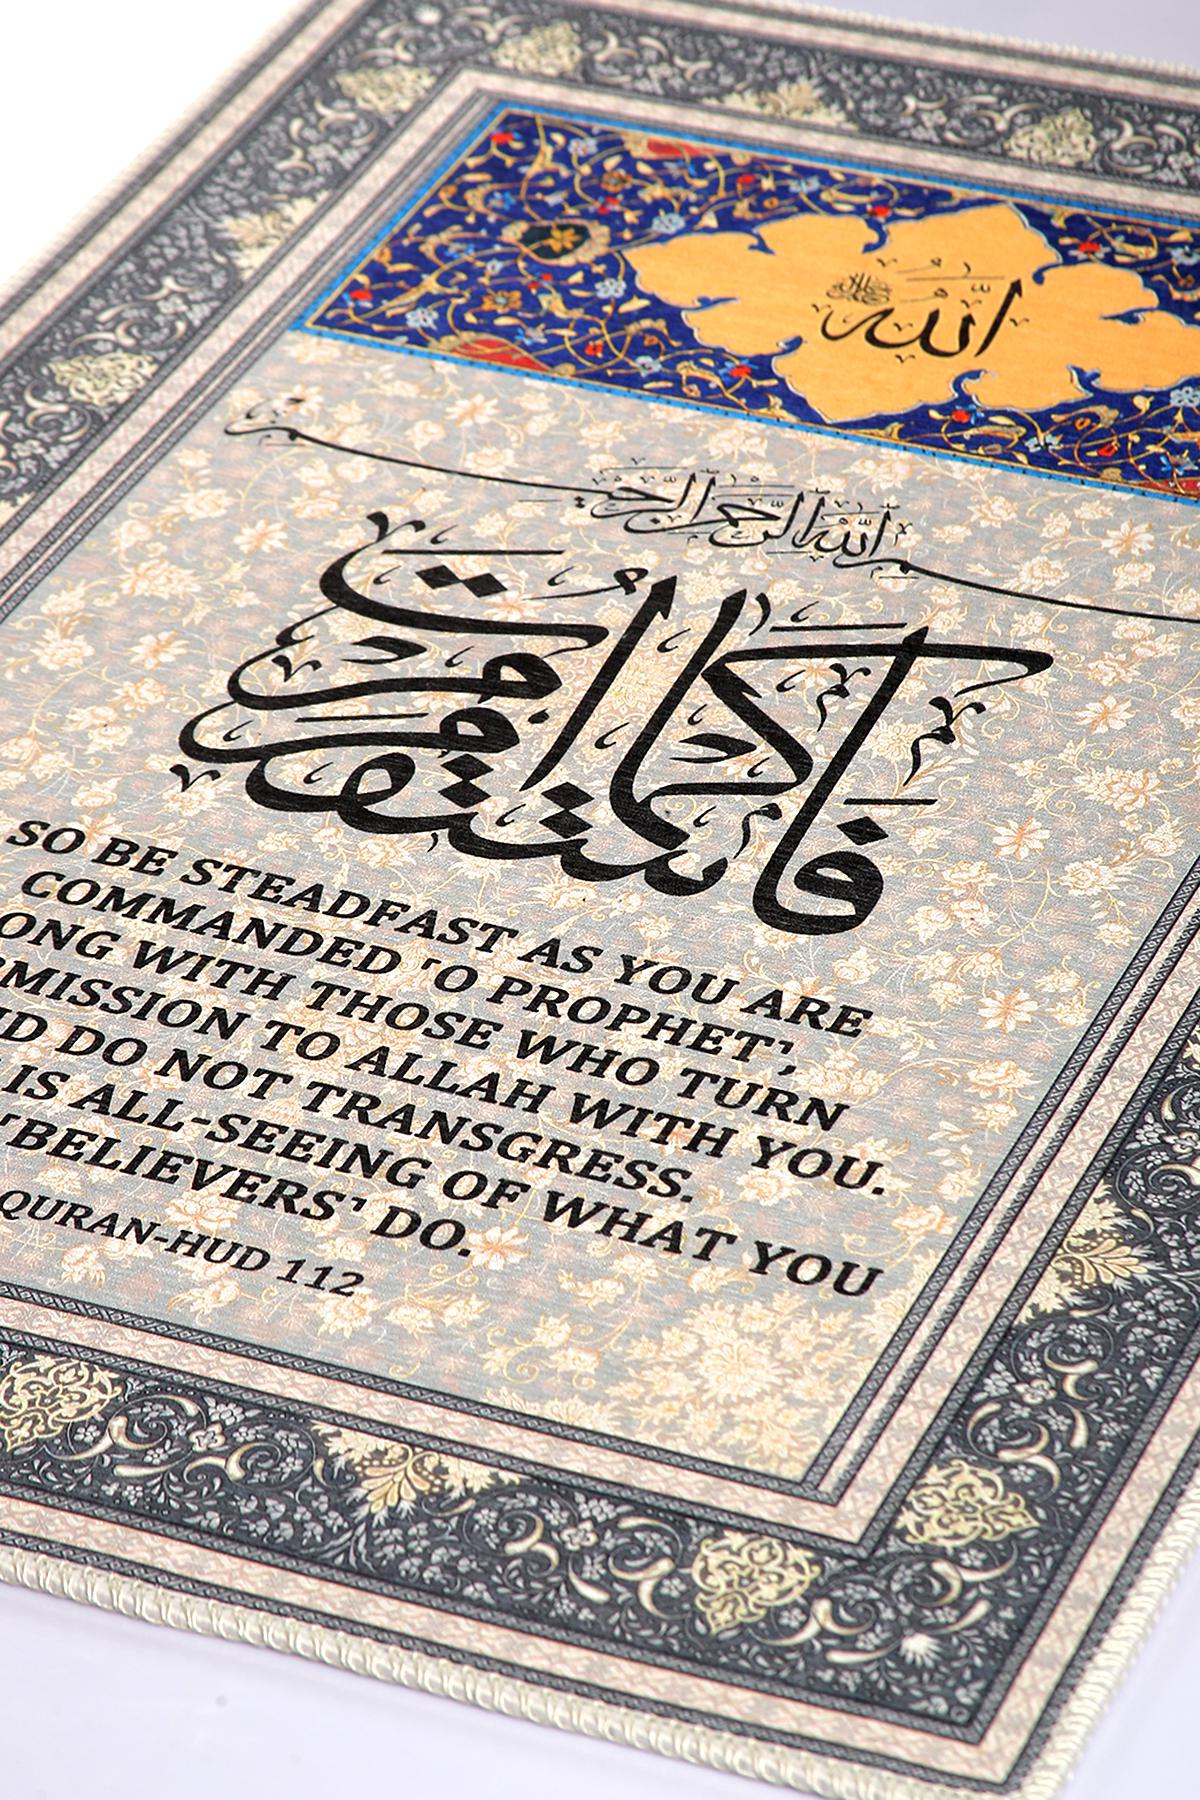 الله
بسم الله الرحمن الرحيم
فَاسْتَقِمْ كَمَا أُمِرْتَ
SO BE STEADFAST AS YOU ARE
COMMANDED 'O PROPHET',
ONG WITH THOSE WHO TURN
MISSION TO ALLAH WITH YOU.
D DO NOT TRANSGRESS.
IS ALL-SEEING OF WHAT YOU
'BELIEVERS' DO.
QURAN-HUD 112